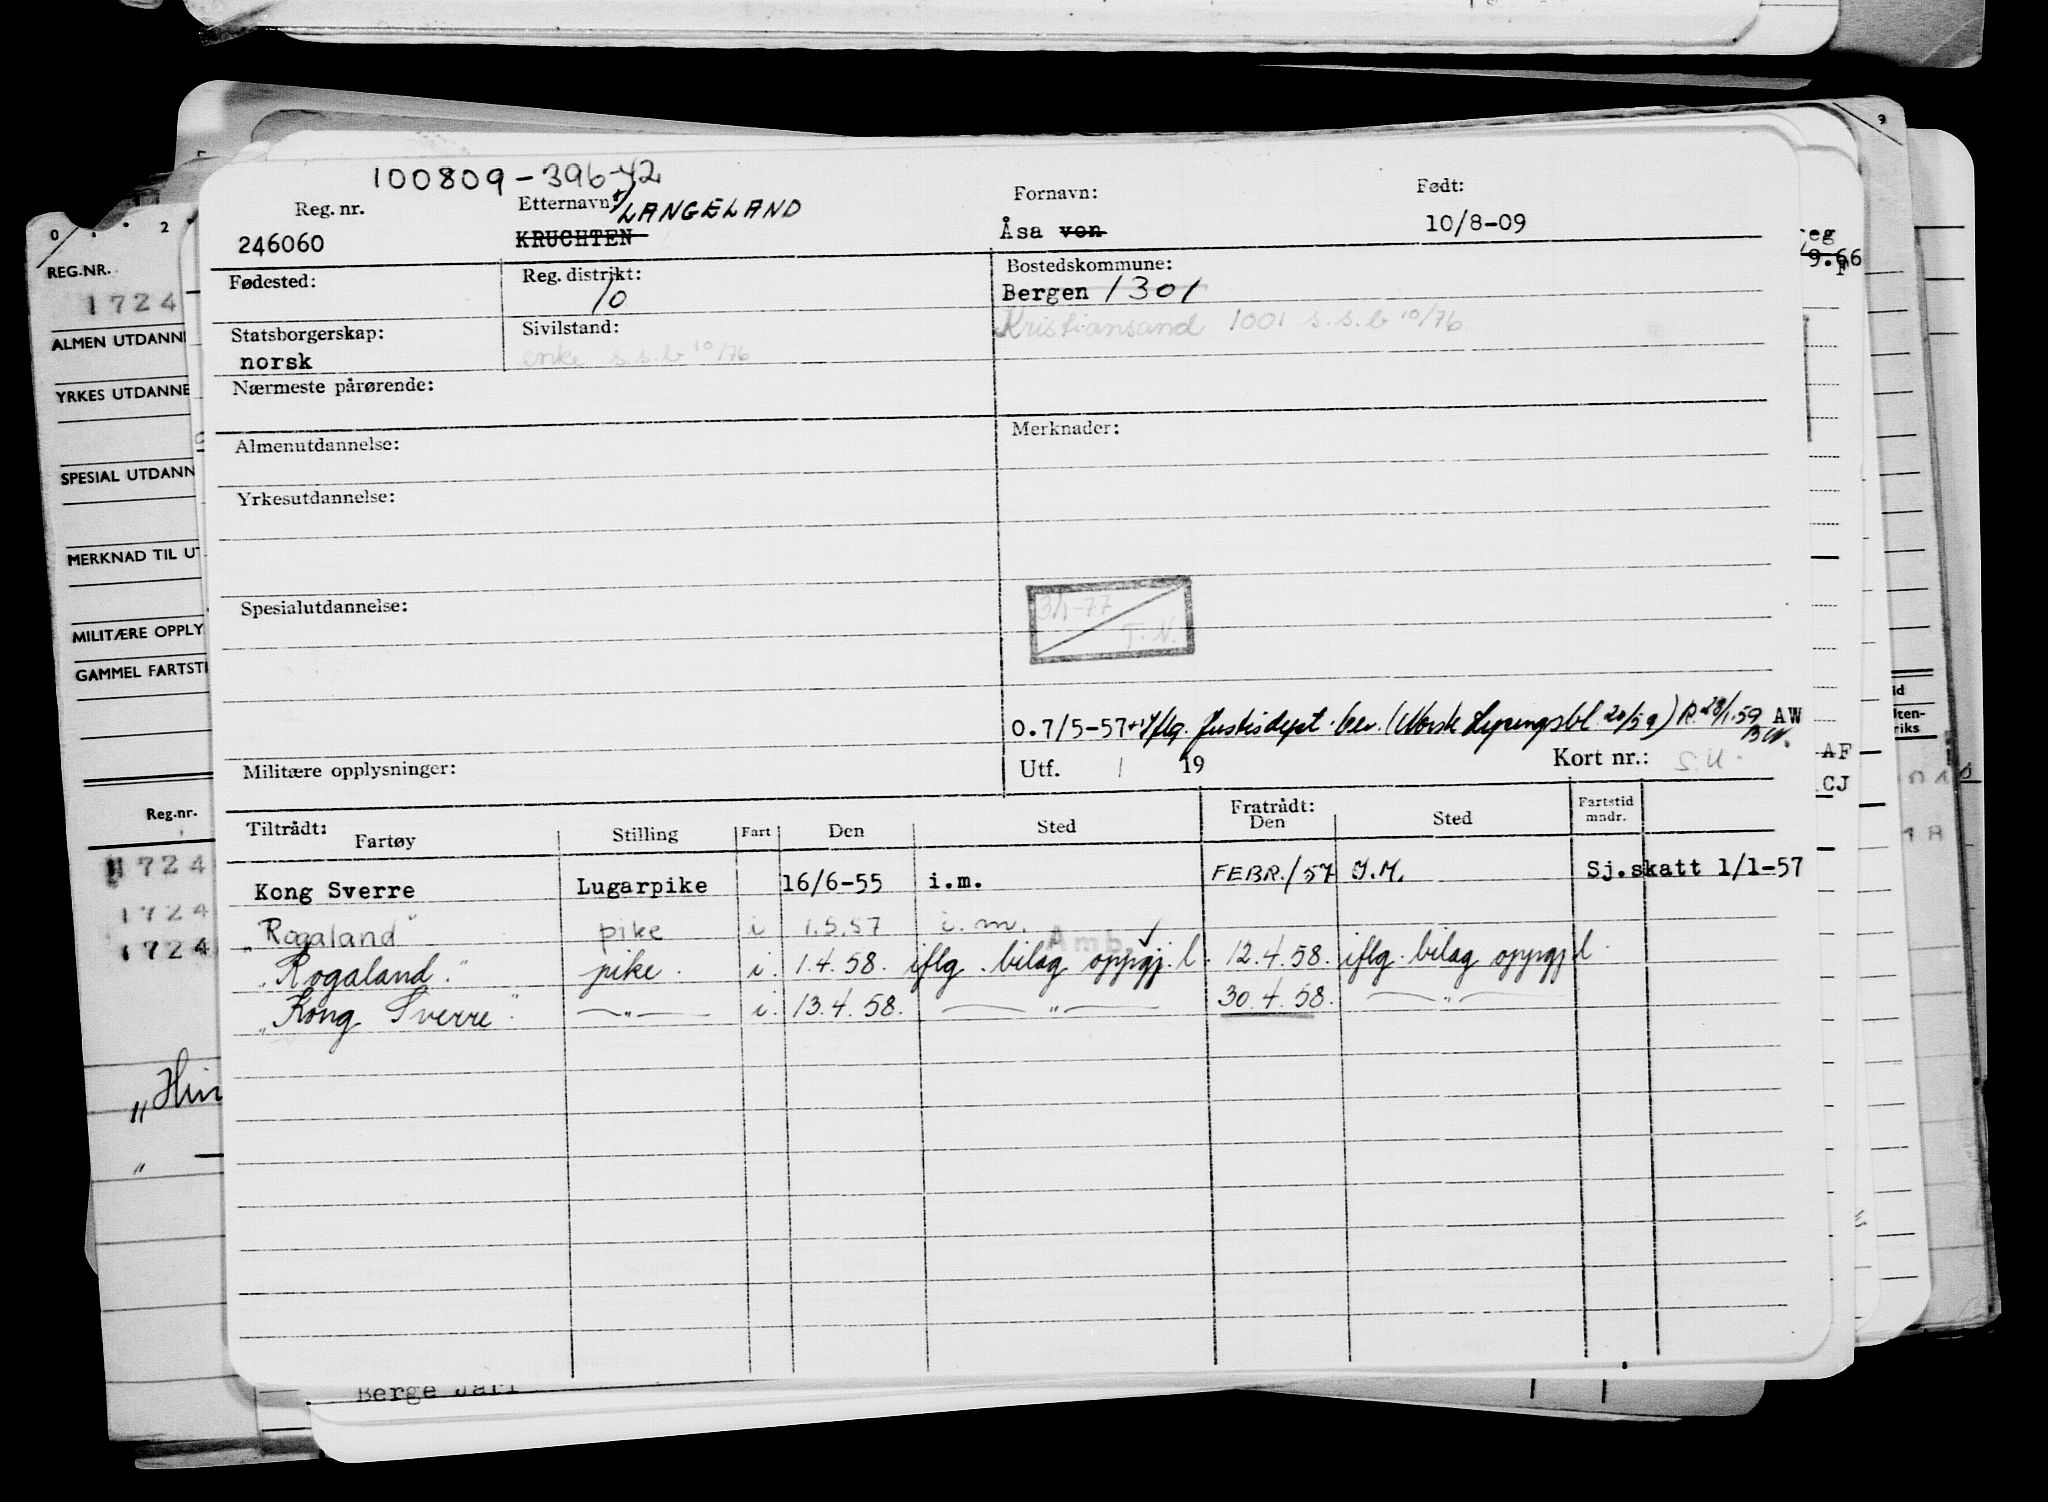 100809-396-42
Reg. nr. Etternavn: LANGELAND Fornavn: Født:
246060 KRUCHTEN Åsa von 10/8-09
Fødested: Reg. distrikt: Bostedskommune:
10 Bergen 1301
Statsborgerskap: Sivilstand: Kristiansand 1001 s.s.b 10/76
norsk enke s.s.b 10/76
Nærmeste pårørende:
Almenutdannelse: Merknader:
Yrkesutdannelse:
Spesialutdannelse:
3/1-77
T.N.
O.7/5-57 +) Iflg. Justisdept. bev. (Norsk Lysingsbl. 20/59) R. 28/1.59 AW
Militære opplysninger: Utf. / 19 Kort nr.: S.U.
Tiltrådt: Fratrådt: Fartstid
Fartøy Stilling Fart Den Sted Den Sted mndr.
Kong Sverre Lugarpike 16/6-55 i.m. FEBR./57 I.M. Sj.skatt 1/1-57
"Rogaland" pike i 1.5.57 i.m.
Amb.
"Rogaland." pike. i. 1.4.58. iflg. bilag oppgj. l. 12.4.58. iflg. bilag oppgj l.
"Kong Sverre" — " — i. 13.4.58. — " — 30.4.58. — " —
REG.NR.
1724
ALMEN UTDANNE
YRKES UTDANNE
SPESIAL UTDANN
MERKNAD TIL UT
MILITÆRE OPPLY
GAMMEL FARTSTI
Reg.nr.
1724
1724
1724
"Hin
" —
reg
9.66
F
AF
CJ
Berge Jarl